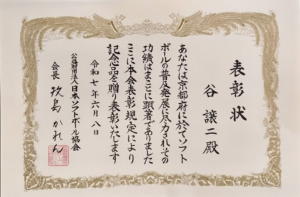 表彰状
谷 譲二殿
あなたは京都府に於てソフト
ボールの普及発展に尽力されその
功績はまことに顕著でありました
ここに本会表彰規定により
記念品を贈り表彰いたします
令和七年六月八日
公益財団法人日本ソフトボール協会
会長 かれん